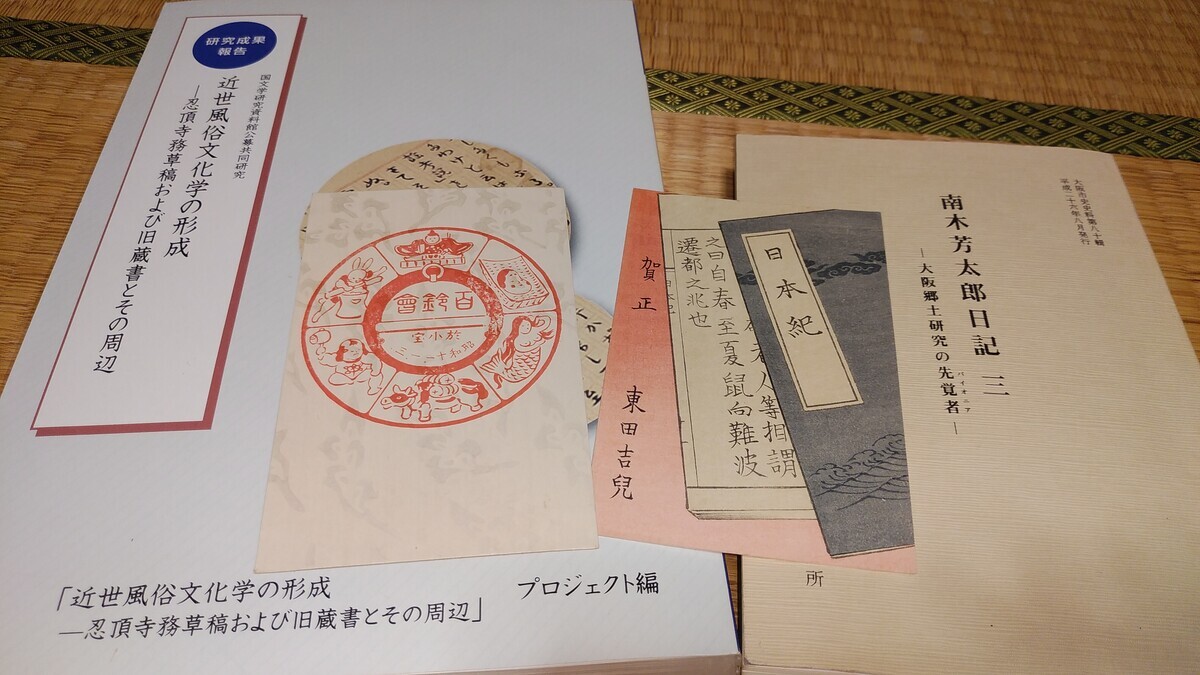 研究成果
報告
国文学研究資料館公募共同研究
近世風俗文化学の形成
―忍頂寺務草稿および旧蔵書とその周辺
「近世風俗文化学の形成
―忍頂寺務草稿および旧蔵書とその周辺」
プロジェクト編
百鈴會
於小宝
昭和十一・一・三
賀正
東田吉兒
日本紀
人等相謂
之曰自春至夏鼠向難波
遷都之兆也
大阪市史史料第八十輯
平成二十六年八月発行
南木芳太郎日記 三
―大阪郷土研究の先覚者―
パイオニア
所